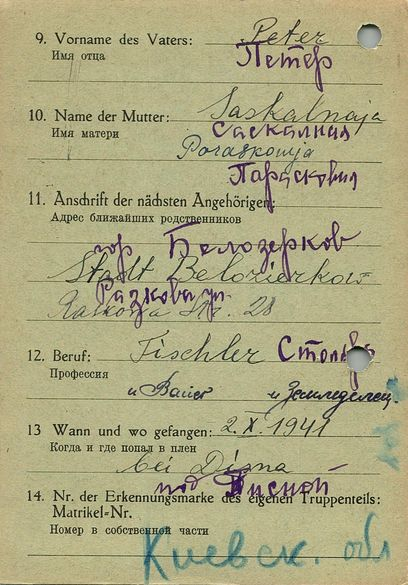 9. Vorname des Vaters: Peter
Имя отца Петер
10. Name der Mutter: Saskalnaja
Имя матери Саскалная
Poraskowja
Парасковия
11. Anschrift der nächsten Angehörigen:
Адрес ближайших родственников
гор Белозерков
Stadt Belozierkow
Разкова ул.
Raskowa Str. 28
12. Beruf: Tischler Столяр
Профессия
u Bauer и Земледелец.
13 Wann und wo gefangen: 2. X. 1941
Когда и где попал в плен
bei Disna
под Дисной
14. Nr. der Erkennungsmarke des eigenen Truppenteils:
Matrikel-Nr.
Номер в собственной части
Киевск. обл